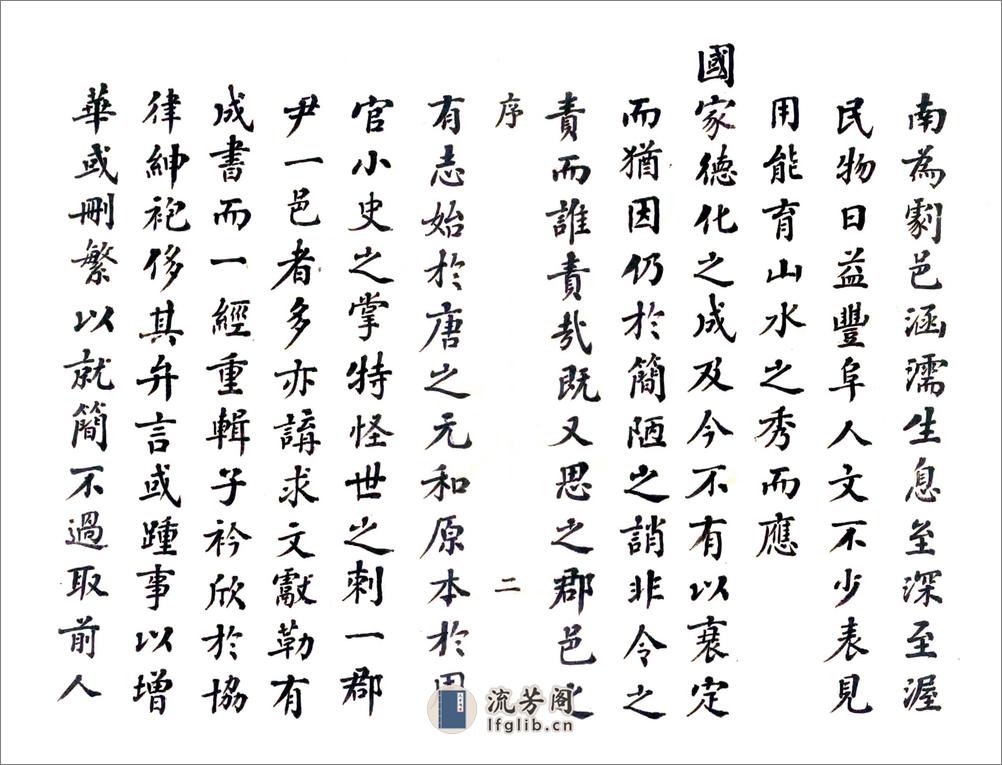 南為劇邑涵濡生息至深至渥
民物日益豐阜人文不少表見
用能育山水之秀而應
國家德化之成及今不有以裒定
而猶因仍於簡陋之誚非令之
責而誰責㢤既又思之郡邑之
序 二
有志始於唐之元和原本於周
官小史之掌特怪世之刺一郡
尹一邑者多亦講求文獻勒有
成書而一經重輯子衿欣於協
律紳袍侈其弁言或踵事以增
華或刪繁以就簡不過取前人
流芳阁
lfglib.cn